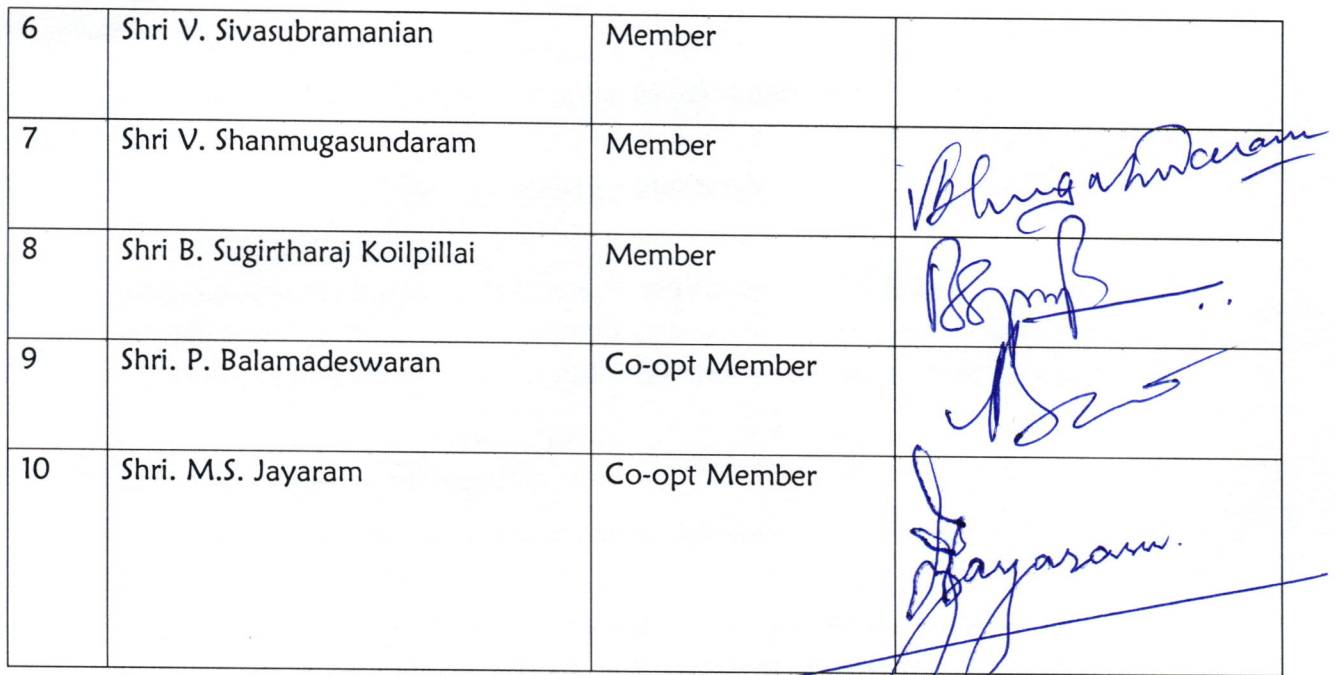 6 Shri V. Sivasubramanian Member
7 Shri V. Shanmugasundaram Member
8 Shri B. Sugirtharaj Koilpillai Member
9 Shri. P. Balamadeswaran Co-opt Member
10 Shri. M.S. Jayaram Co-opt Member
Jayaram.